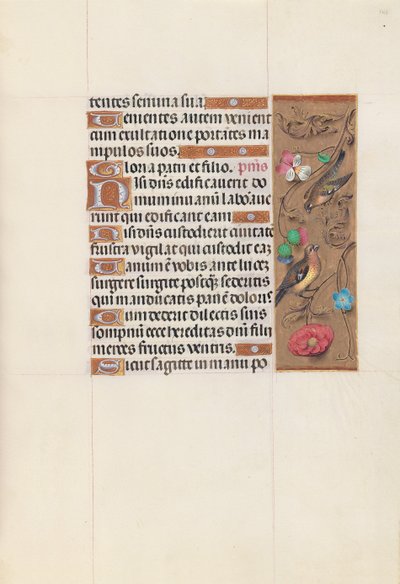 tentes semina sua.
Uenientes autem venient
cum exultatione portātes ma
nipulos suos.
Gloria patri et filio. p̄ms
Nisi dn̄s edificauerit do
mum in vanū laboraue
runt qui edificant eam
Nisi dn̄s custodierit ciuitatē
frustra vigilat qui custodit eaȝ
Uanum ē vobis ante luceȝ
surgere surgite postq̄ȝ sederitis
qui manducatis panē doloris
Cum dederit dilectis suis
sompnū ecce hereditas dn̄i filii
merces fructus ventris.
Sicut sagitte in manu po